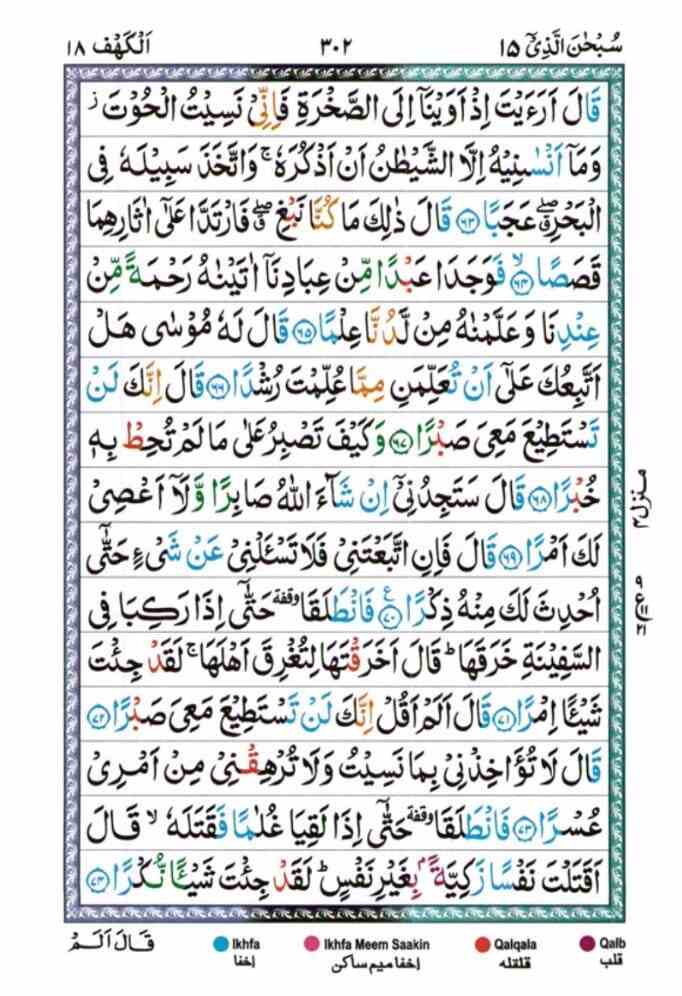 سُبْحٰنَ الَّذِیْۤ ١٥ ٣٠٢ اَلْكَهْف ١٨
قَالَ اَرَءَیْتَ اِذْ اَوَیْنَاۤ اِلَی الصَّخْرَةِ فَاِنِّیْ نَسِیْتُ الْحُوْتَ ؗ
وَمَاۤ اَنْسٰىنِیْهُ اِلَّا الشَّیْطٰنُ اَنْ اَذْكُرَهٗ ۚ وَاتَّخَذَ سَبِیْلَهٗ فِی
الْبَحْرِ ۖۗ عَجَبًا ﴿٦٣﴾ قَالَ ذٰلِكَ مَا كُنَّا نَبْغِ ۖۗ فَارْتَدَّا عَلٰۤی اٰثَارِهِمَا
قَصَصًا ۙ﴿٦٤﴾ فَوَجَدَا عَبْدًا مِّنْ عِبَادِنَاۤ اٰتَیْنٰهُ رَحْمَةً مِّنْ
عِنْدِنَا وَعَلَّمْنٰهُ مِنْ لَّدُنَّا عِلْمًا ﴿٦٥﴾ قَالَ لَهٗ مُوْسٰی هَلْ
اَتَّبِعُكَ عَلٰۤی اَنْ تُعَلِّمَنِ مِمَّا عُلِّمْتَ رُشْدًا ﴿٦٦﴾ قَالَ اِنَّكَ لَنْ
تَسْتَطِیْعَ مَعِیَ صَبْرًا ﴿٦٧﴾ وَكَیْفَ تَصْبِرُ عَلٰی مَا لَمْ تُحِطْ بِهٖ
خُبْرًا ﴿٦٨﴾ قَالَ سَتَجِدُنِیْۤ اِنْ شَآءَ اللّٰهُ صَابِرًا وَّلَاۤ اَعْصِیْ
لَكَ اَمْرًا ﴿٦٩﴾ قَالَ فَاِنِ اتَّبَعْتَنِیْ فَلَا تَسْـَٔلْنِیْ عَنْ شَیْءٍ حَتّٰۤی
اُحْدِثَ لَكَ مِنْهُ ذِكْرًا ﴿٧٠﴾ ع فَانْطَلَقَا وقفة حَتّٰۤی اِذَا رَكِبَا فِی
السَّفِیْنَةِ خَرَقَهَا ؕ قَالَ اَخَرَقْتَهَا لِتُغْرِقَ اَهْلَهَا ۚ لَقَدْ جِئْتَ
شَیْـًٔا اِمْرًا ﴿٧١﴾ قَالَ اَلَمْ اَقُلْ اِنَّكَ لَنْ تَسْتَطِیْعَ مَعِیَ صَبْرًا ﴿٧٢﴾
قَالَ لَا تُؤَاخِذْنِیْ بِمَا نَسِیْتُ وَلَا تُرْهِقْنِیْ مِنْ اَمْرِیْ
عُسْرًا ﴿٧٣﴾ فَانْطَلَقَا وقفة حَتّٰۤی اِذَا لَقِیَا غُلٰمًا فَقَتَلَهٗ ۙ قَالَ
اَقَتَلْتَ نَفْسًا زَكِیَّةًۢ بِغَیْرِ نَفْسٍ ؕ لَقَدْ جِئْتَ شَیْـًٔا نُّكْرًا ﴿٧٤﴾
منزل ٤
قَالَ اَلَمْ
Ikhfa Ikhfa Meem Saakin Qalqala Qalb
إخفا إخفا میم ساکن قلقله قلب